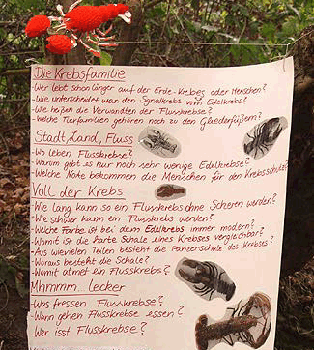 Die Krebsfamilie
- Wer lebt schon länger auf der Erde - Krebse oder Menschen?
- Wie unterscheidet man den Signalkrebs vom Edelkrebs?
- Wie heißen die Verwandten der Flusskrebse?
- Welche Tierfamilien gehören noch zu den Gliederfüßern?
Stadt, Land, Fluss
- Wo leben Flusskrebse?
- Warum gibt es nur noch sehr wenige Edelkrebse?
- Welche Note bekommen die Menschen für den Krebsschutz?
Voll der Krebs
- Wie lang kann so ein Flusskrebs ohne Scheren werden?
- Wie schwer kann ein Flusskrebs werden?
- Welche Farbe ist bei dem Edelkrebs immer modern?
- Womit ist die harte Schale eines Krebses vergleichbar?
- Aus wievielen Teilen besteht die Panzerschale des Krebses?
- Woraus besteht die Schale?
- Womit atmet ein Flusskrebs?
Mhmmm... lecker
- Was fressen Flusskrebse?
- Wann gehen Flusskrebse essen?
- Wer isst Flusskrebse?